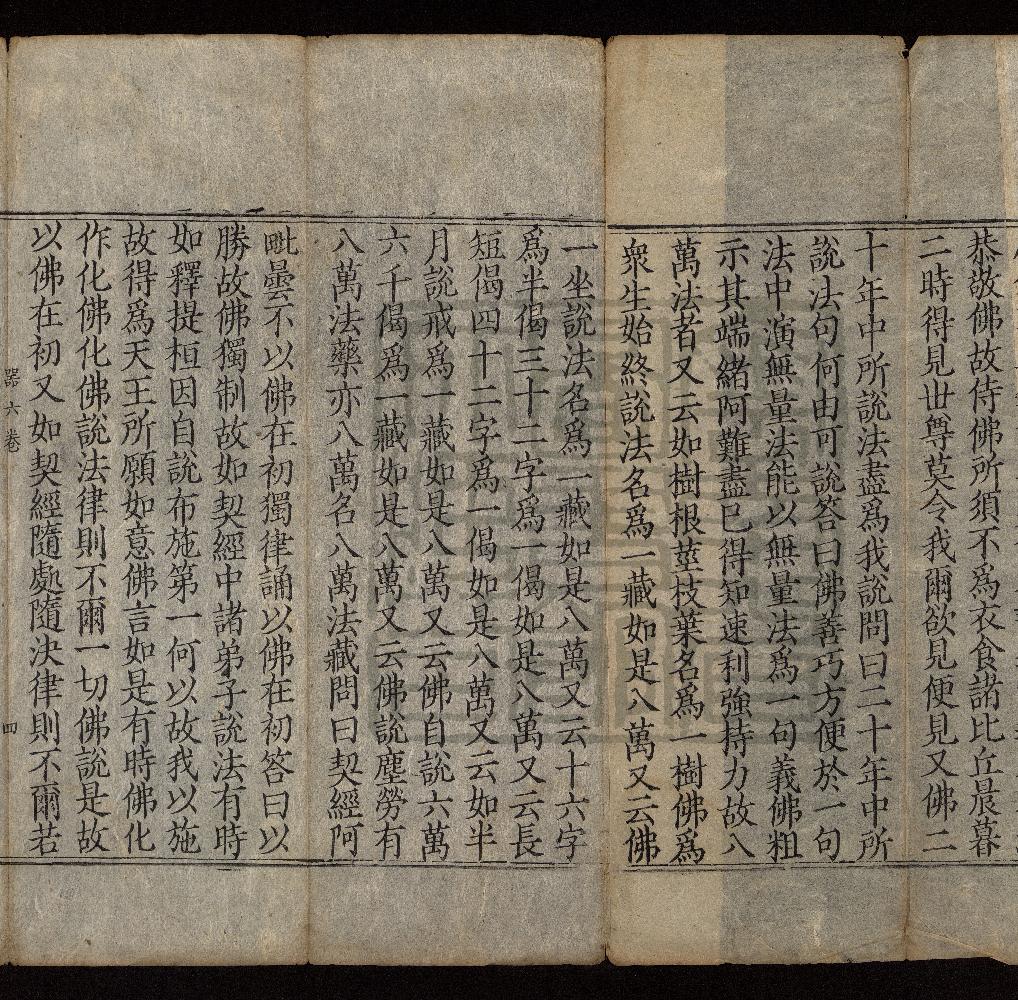 恭敬佛故侍佛所須不爲衣食諸比丘晨暮
二時得見世尊莫令我爾欲見便見又佛二
十年中所說法盡爲我說問曰二十年中所
說法句何由可說答曰佛善巧方便於一句
法中演無量法能以無量法爲一句義佛粗
示其端緒阿難盡已得知速利強持力故八
萬法者又云如樹根莖枝葉名爲一樹佛爲
衆生始終說法名爲一藏如是八萬又云佛
一坐說法名爲一藏如是八萬又云十六字
爲半偈三十二字爲一偈如是八萬又云長
短偈四十二字爲一偈如是八萬又云如半
月說戒爲一藏如是八萬又云佛自說六萬
六千偈爲一藏如是八萬又云佛說塵勞有
八萬法藥亦八萬名八萬法藏問曰契經阿
毗曇不以佛在初獨律誦以佛在初答曰以
勝故佛獨制故如契經中諸弟子說法有時
如釋提桓因自說布施第一何以故我以施
故得爲天王所願如意佛言如是有時佛化
作化佛化佛說法律則不爾一切佛說是故
以佛在初又如契經隨處隨決律則不爾若
六卷 四